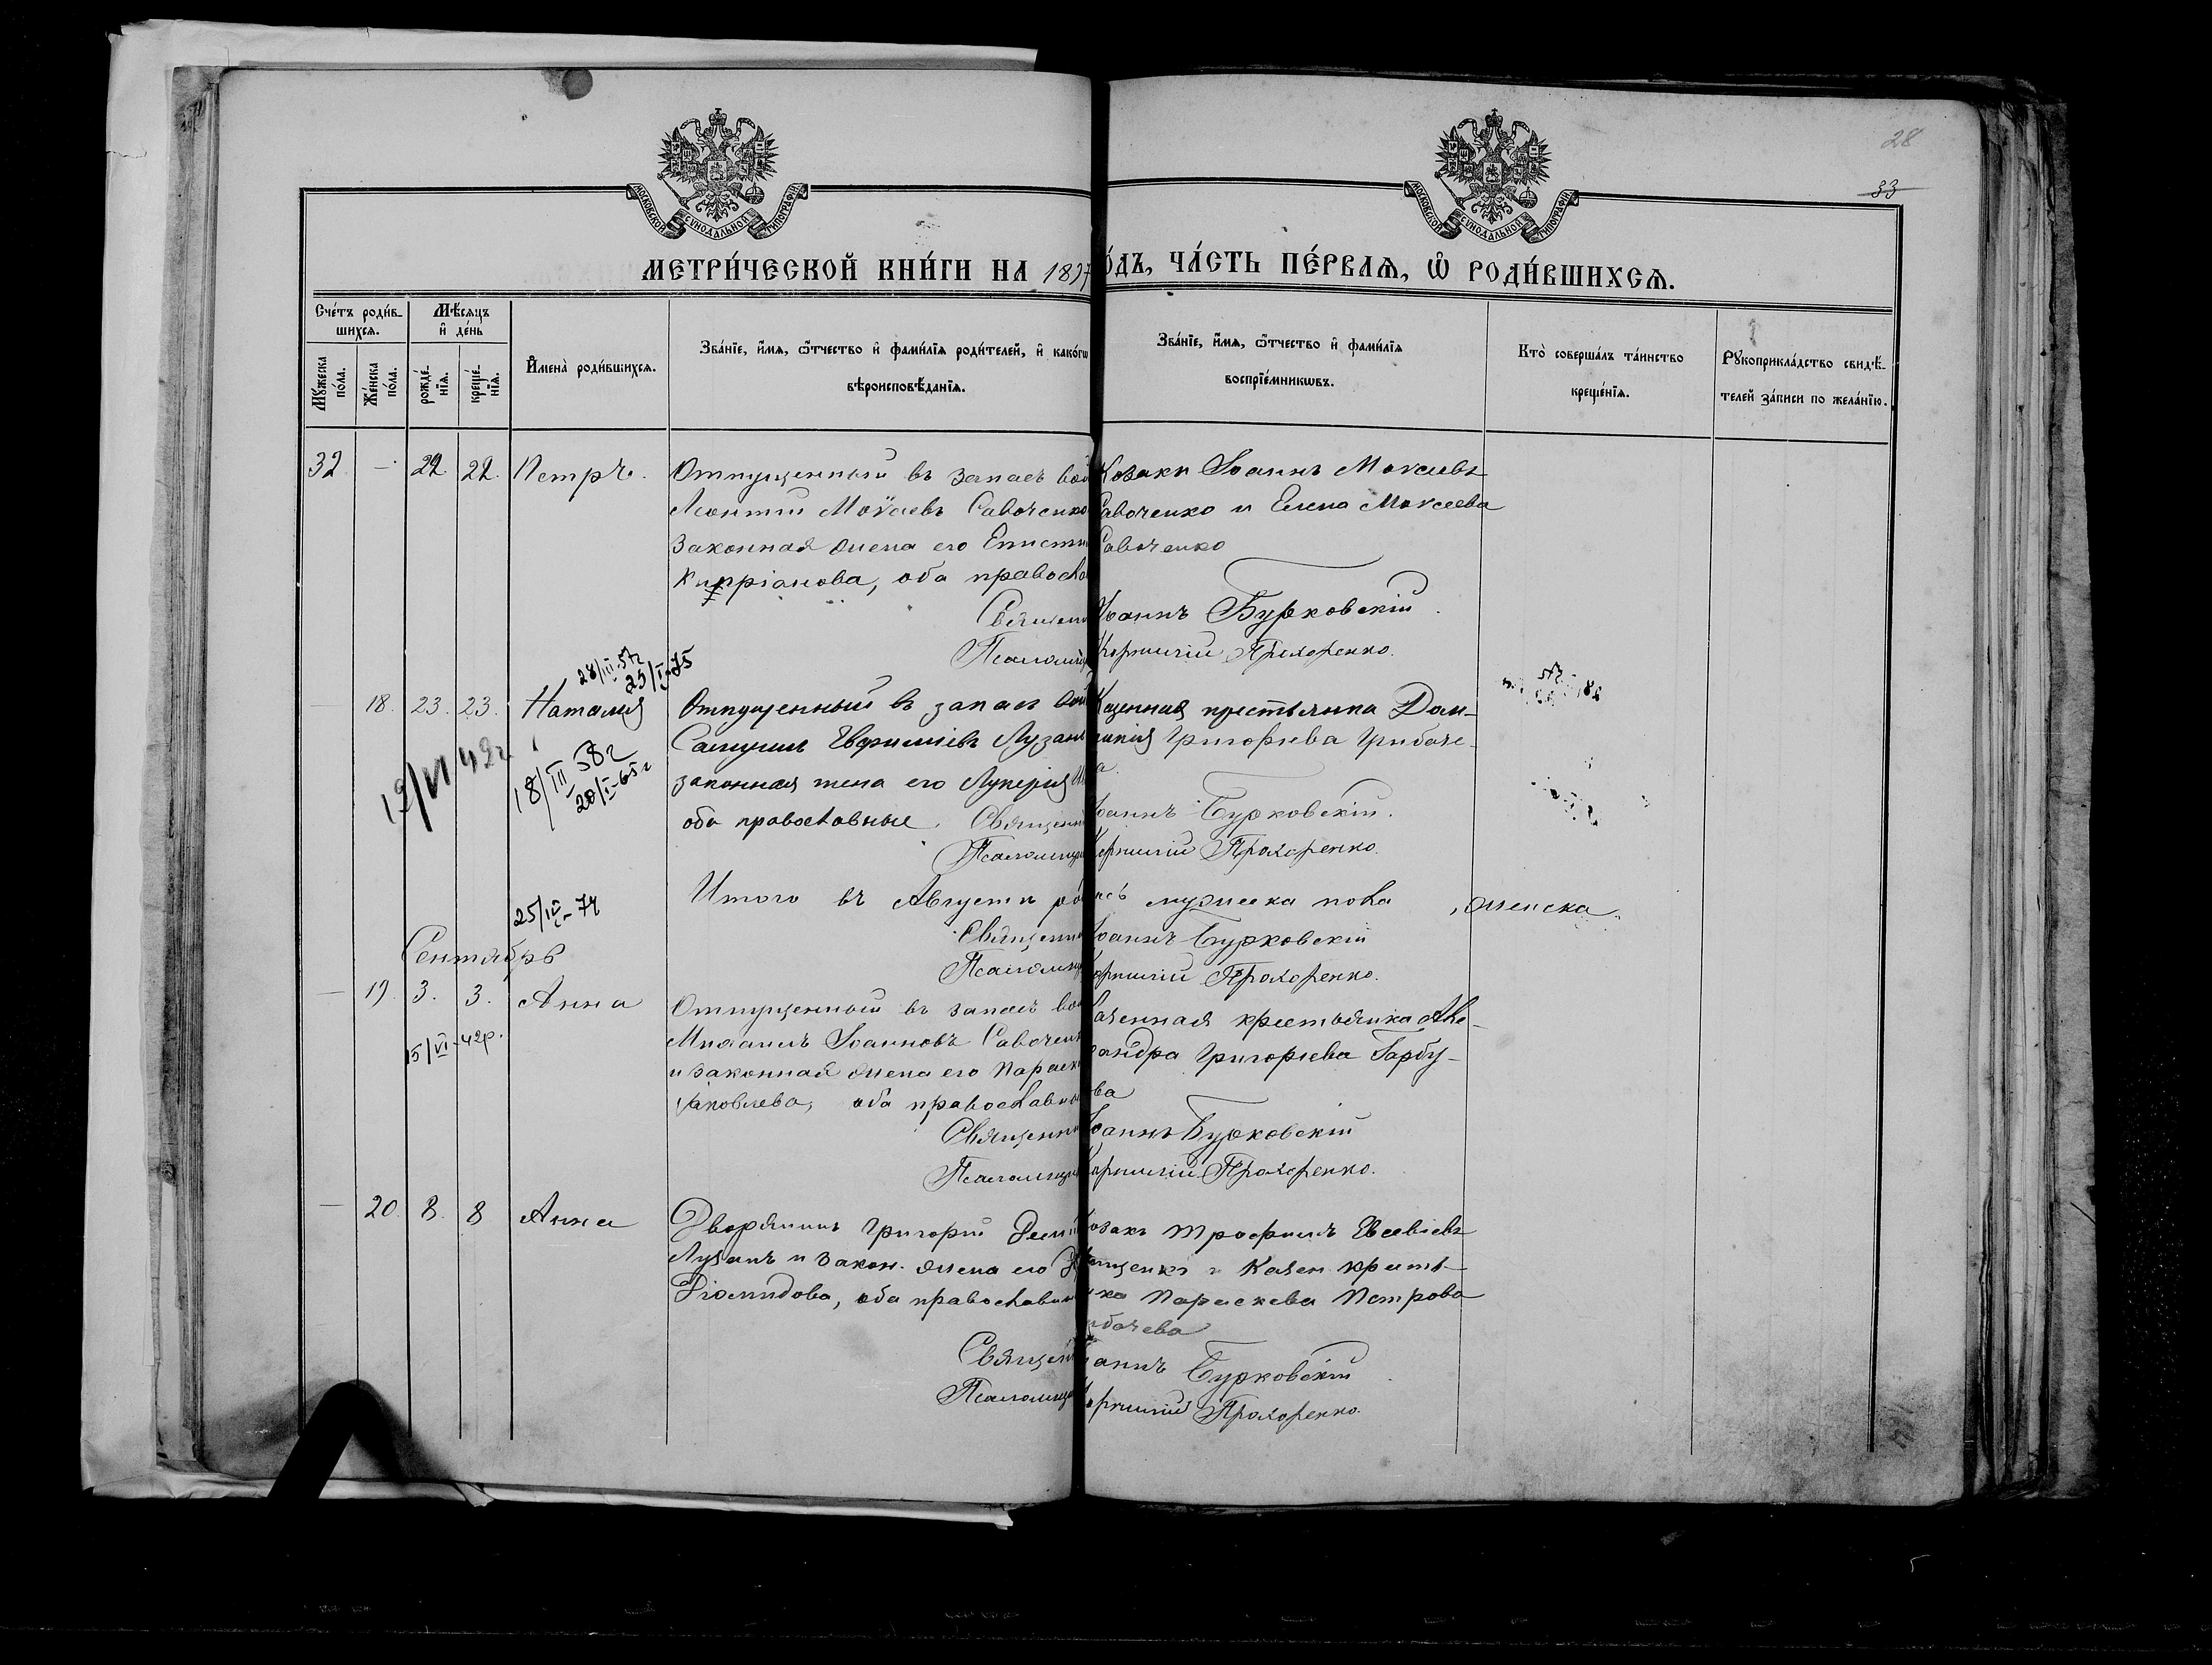 28
33
МОСКОВСКОЙ СѴНОДАЛЬНОЙ ТИПОГРАФІИ
МОСКОВСКОЙ СѴНОДАЛЬНОЙ ТИПОГРАФІИ
МЕТРИ́ЧЕСКОЙ КНИ́ГИ НА 1897
О́ДЪ, ЧА́СТЬ ПЕ́РВАѦ, Ѡ РОДИ́ВШИХСѦ.
Сче́тъ роди́в-
шихсѧ.
Мꙋ́жеска по́ла.
Же́нска по́ла.
Мѣ́сѧцъ
и҆ де́нь
рожде́-
нїѧ.
креще́-
нїѧ.
И҆мена̀ роди́вшихсѧ.
Зва́нїе, и҆́мѧ, ѻ҆́тчество и҆ фами́лїѧ роди́телей, и҆ како́гѡ
вѣроисповѣ́данїѧ.
Зва́нїе, и҆́мѧ, ѻ҆́тчество и҆ фами́лїѧ
воспрїе́мникѡвъ.
Кто̀ соверша́лъ та́инство
креще́нїѧ.
Рꙋкоприкла́дство свидѣ́-
телей за́писи по жела́нїю.
32. — 22 22. Петръ. Отпущенный въ запасъ вой
Леонтій Моѵсеевъ Савоченко
Законная жена его Епистим
Кипріанова, оба правосла
Козаки Іоаннъ Моѵсеевъ
Савоченко и Елена Моѵсеева
Савоченко
Священн Іоаннъ Бурковскій
Псаломщ Корнилій Прохоренко.
28/III 57г
25/I-75
— 18. 23. 23. Наталія Отпущенный въ запасъ вой
Самуилъ Евфиміевъ Лузан
законная жена его Лукерія
оба православные.
Казенная крестьянка Дом-
никія Григорьева Грибаче-
а.
19/VI 49г
18/III 58г
20/I-65г
Священн Іоаннъ Бурковскій.
Псаломщи Корнилій Прохоренко.
25/IV-74
Итого въ Августѣ ро ась мужеска пола , женска.
Священни Іоаннъ Бурковскій
Псаломщи Корнилій Прохоренко.
Сентябрь
— 19. 3. 3. Анна Отпущенный въ запасъ вой
Михаилъ Іоанновъ Савочен
и законная жена его Параск
Яковлева, оба православны
Казенная крестьянка Але-
сандра Григорьева Гарбу-
ва
15/VI-42р.
Священни Іоаннъ Бурковскій
Псаломщи Корнилій Прохоренко.
— 20. 8. 8 Анна Дворянинъ Григорій Деми
Лузанъ и закон. жена его
Діомидова, оба православны
Козакъ Трофимъ Евсевіевъ
щенко и Казен. крест-
нка Параскева Петрова
бачева
Священн Іоаннъ Бурковскій
Псаломщи Корнилій Прохоренко.